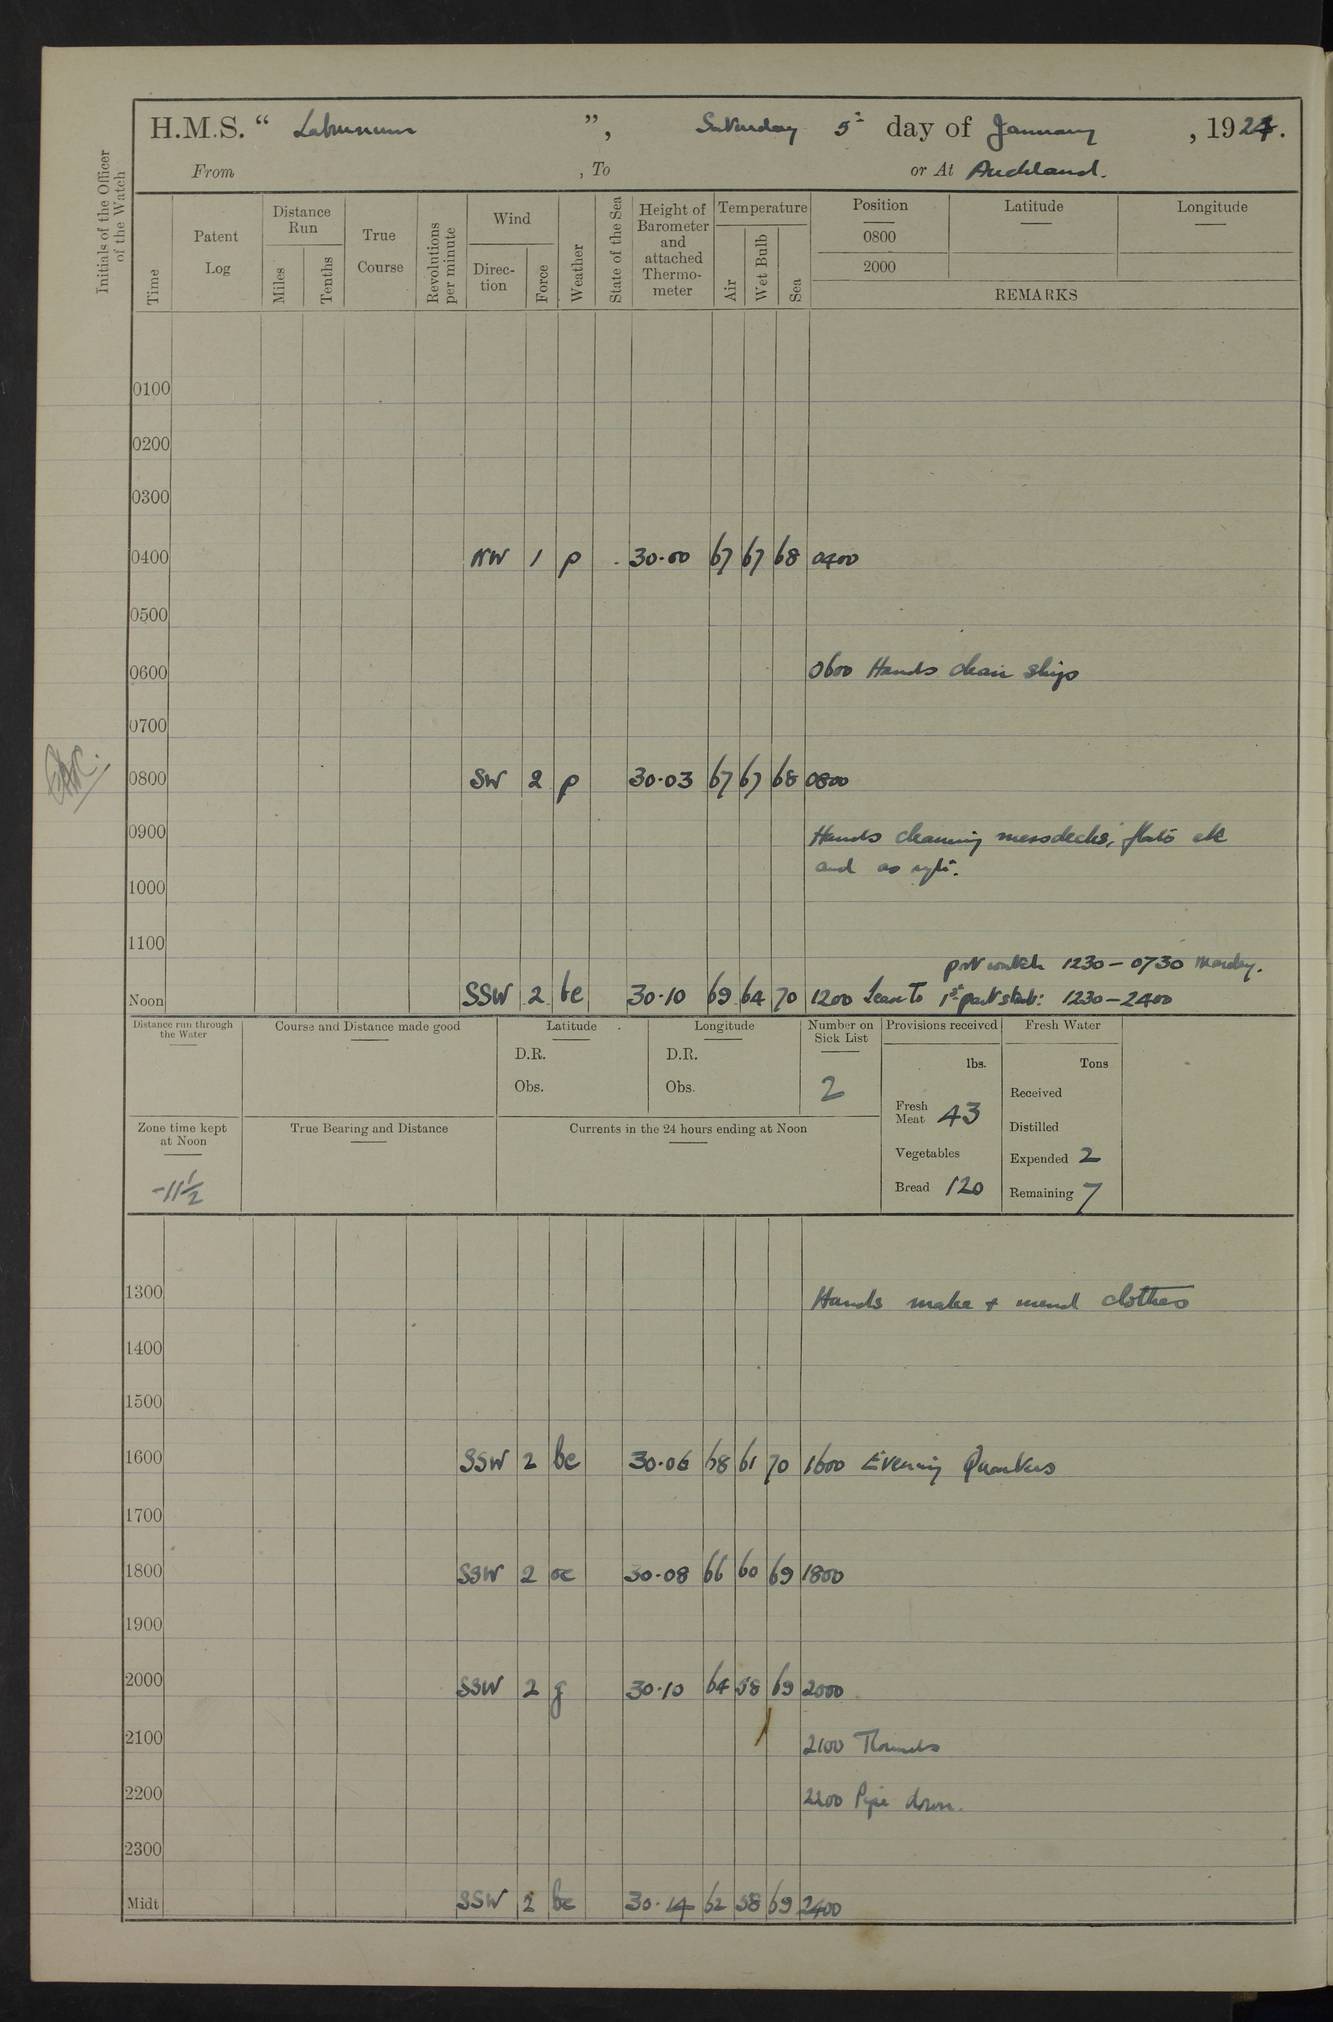 H.M.S. “ Laburnum ”, Saturday 5th day of January , 1924.
From , To or At Auckland.
Initials of the Officer of the Watch
Time
Patent Log
Distance Run
Miles
Tenths
True Course
Revolutions per minute
Wind
Direc-tion
Force
Weather
State of the Sea
Height of Barometer and attached Thermo-meter
Temperature
Air
Wet Bulb
Sea
Position Latitude Longitude
0800
2000
REMARKS
0100
0200
0300
0400 NW 1 p 30.00 67 67 68 0400
0500
0600 0600 Hands clean ship
0700
0800 SW 2 p 30.03 67 67 68 0800
0900 Hands cleaning messdecks, flats etc
and as
1000
1100
port watch 1230 - 0730 Monday.
Noon SSW 2 bc 30.10 69 64 70 1200 Leave to 1st part starb: 1230 - 2400
Distance run through the Water
Course and Distance made good
Latitude
D.R.
Obs.
Longitude
D.R.
Obs.
Number on Sick List
2
Provisions received
lbs.
Fresh Meat 43
Vegetables
Bread 120
Fresh Water
Tons
Received
Distilled
Expended 2
Remaining 7
Zone time kept at Noon
-11½
True Bearing and Distance
Currents in the 24 hours ending at Noon
1300 Hands make + mend clothes
1400
1500
1600 SSW 2 bc 30.06 68 61 70 1600 Evening Quarters
1700
1800 SSW 2 oc 30.08 66 60 69 1800
1900
2000 SSW 2 g 30.10 64 58 69 2000
2100 2100 Rounds
2200 2200 Pipe down.
2300
Midt SSW 2 bc 30.14 62 58 69 2400